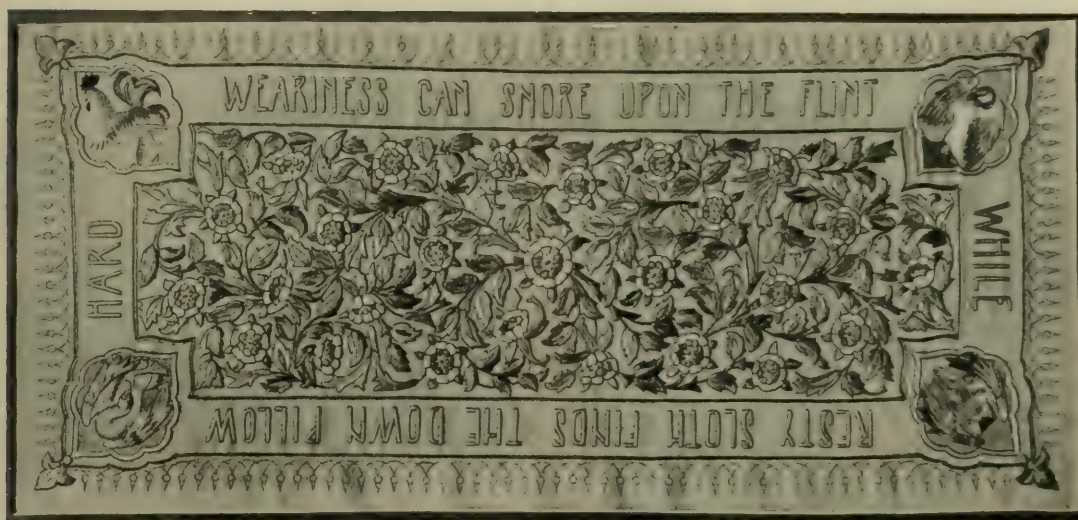 WEARINESS CAN SNORE UPON THE FLINT
WHILE
RESTY SLOTH FINDS THE DOWN PILLOW
HARD